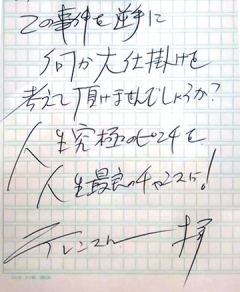 この事件を逆手に
何か大仕掛けを
考えて頂けませんでしょうか?
人生究極のピンチを
人生最良のチャンスに!
テレンス 拝